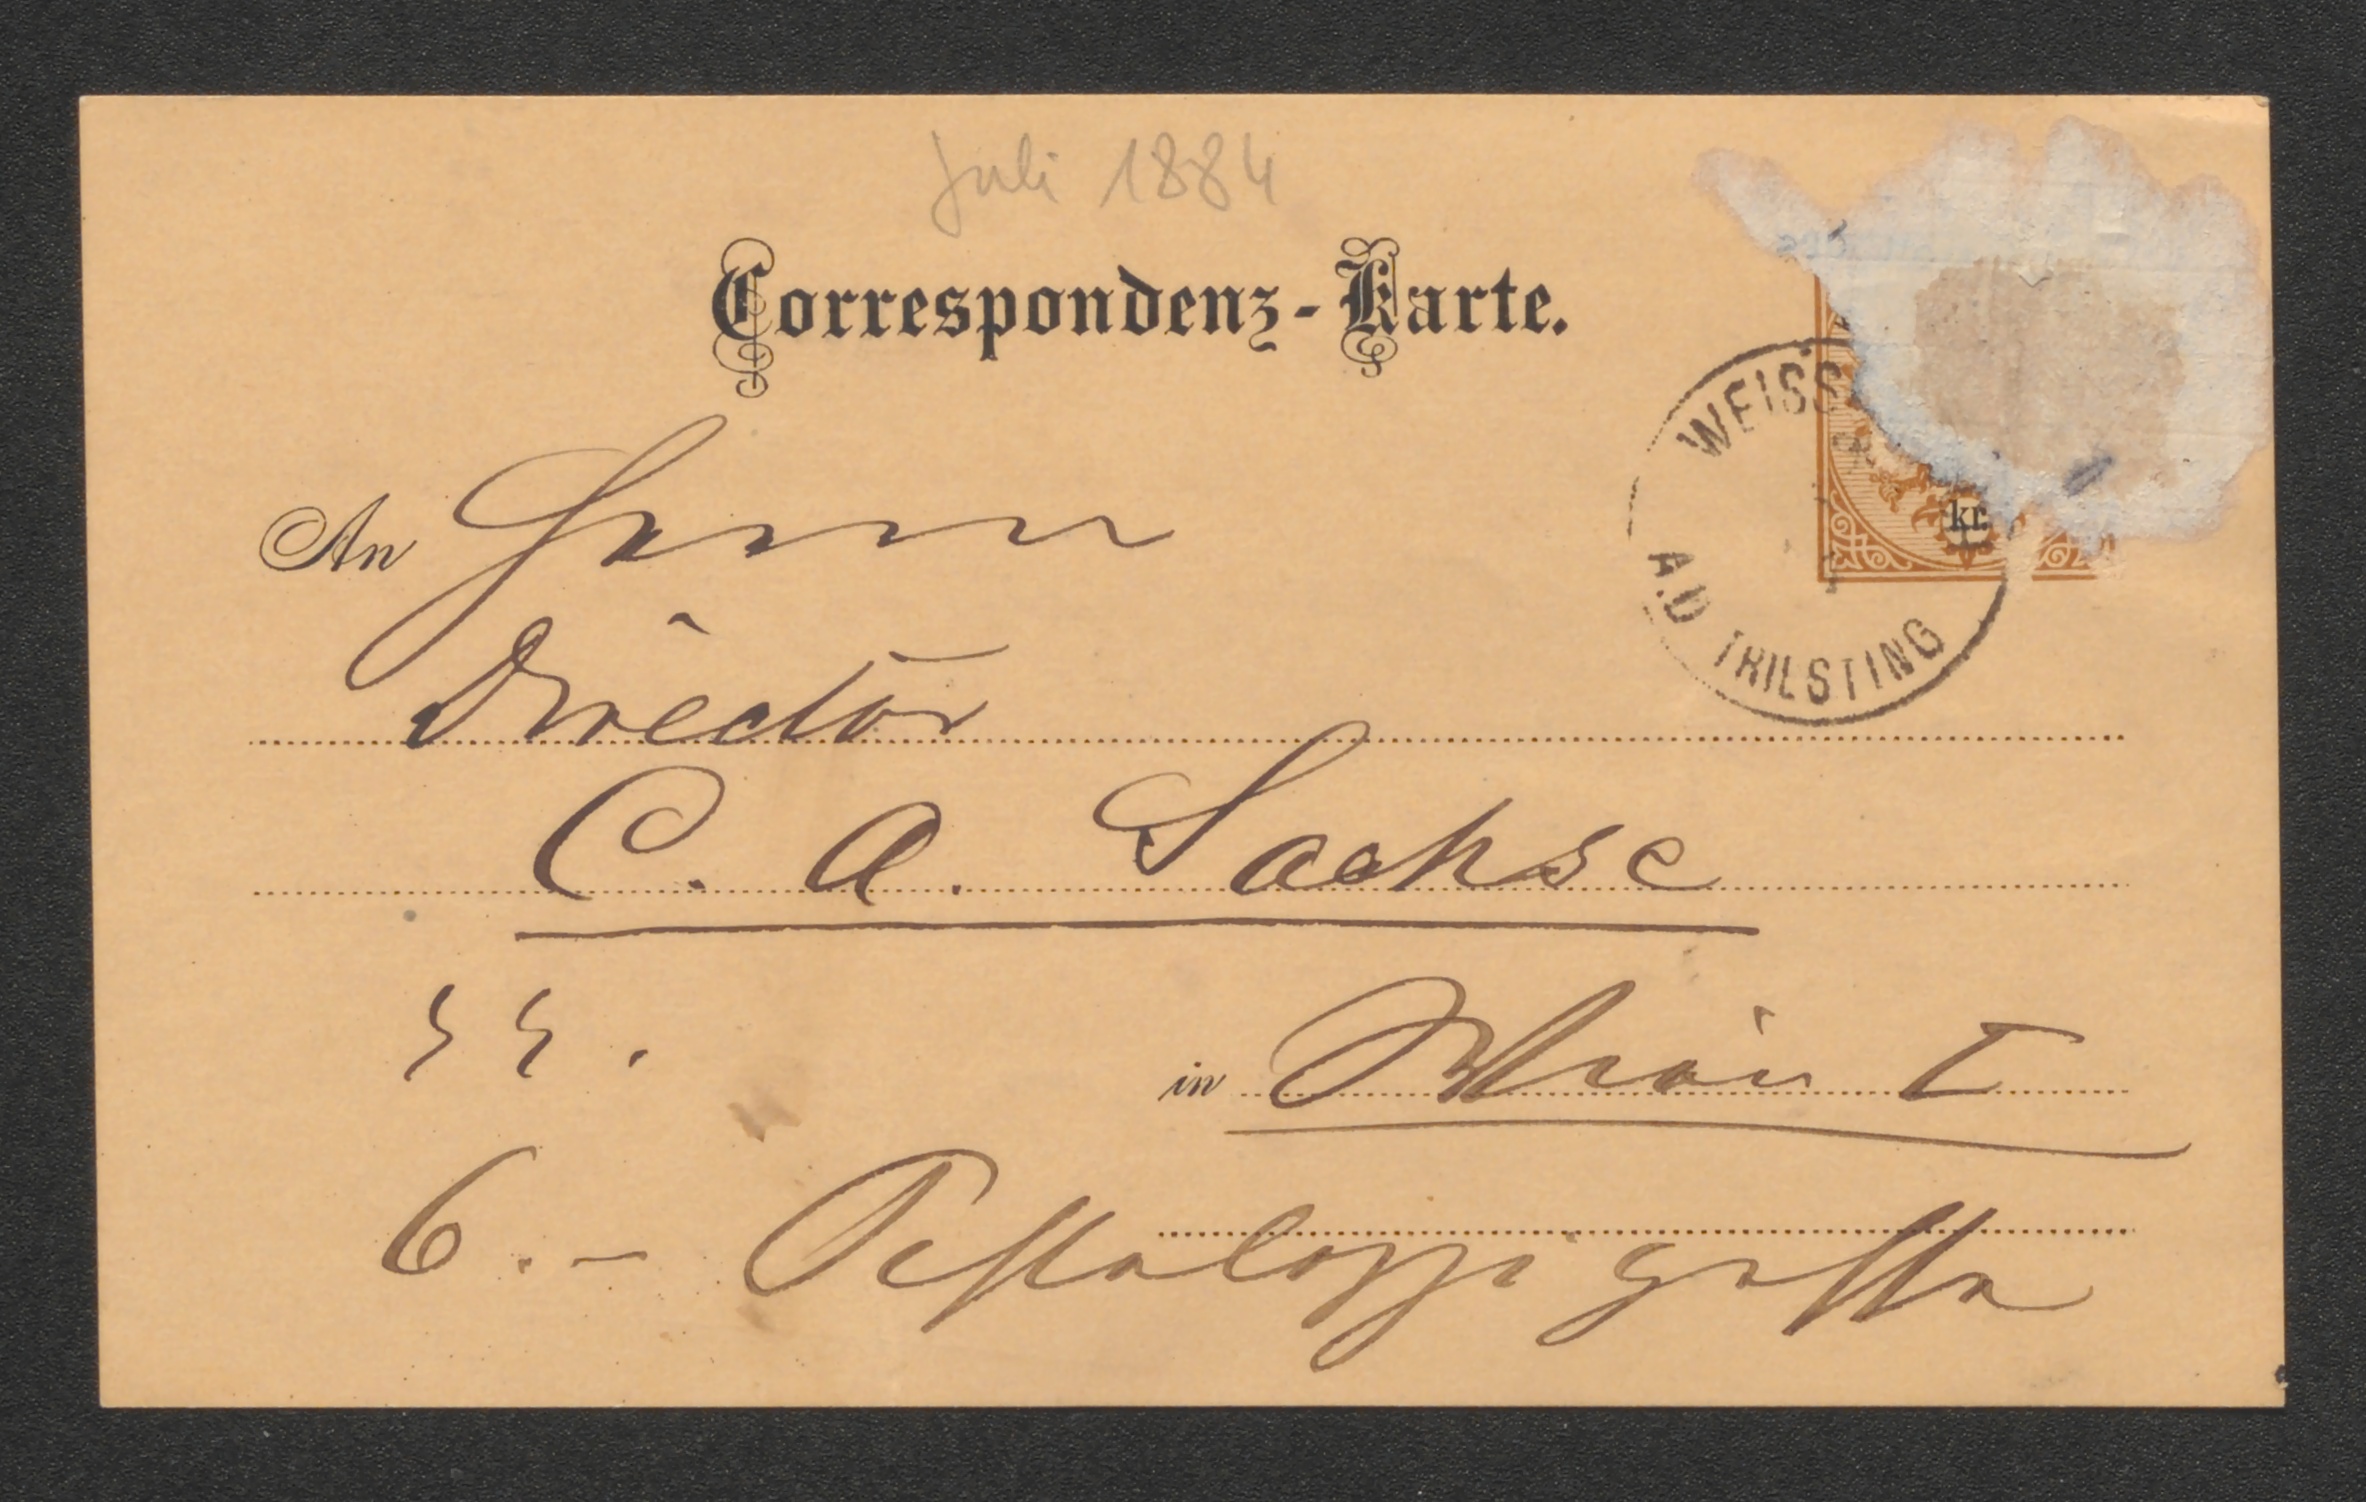 Juli 1884
Correspondenz-Karte.
WEISS
A.D TRIESTING
kr.
An Herrn
Director
C. A. Sachse
in Wien I
6. - Pestalozzigasse